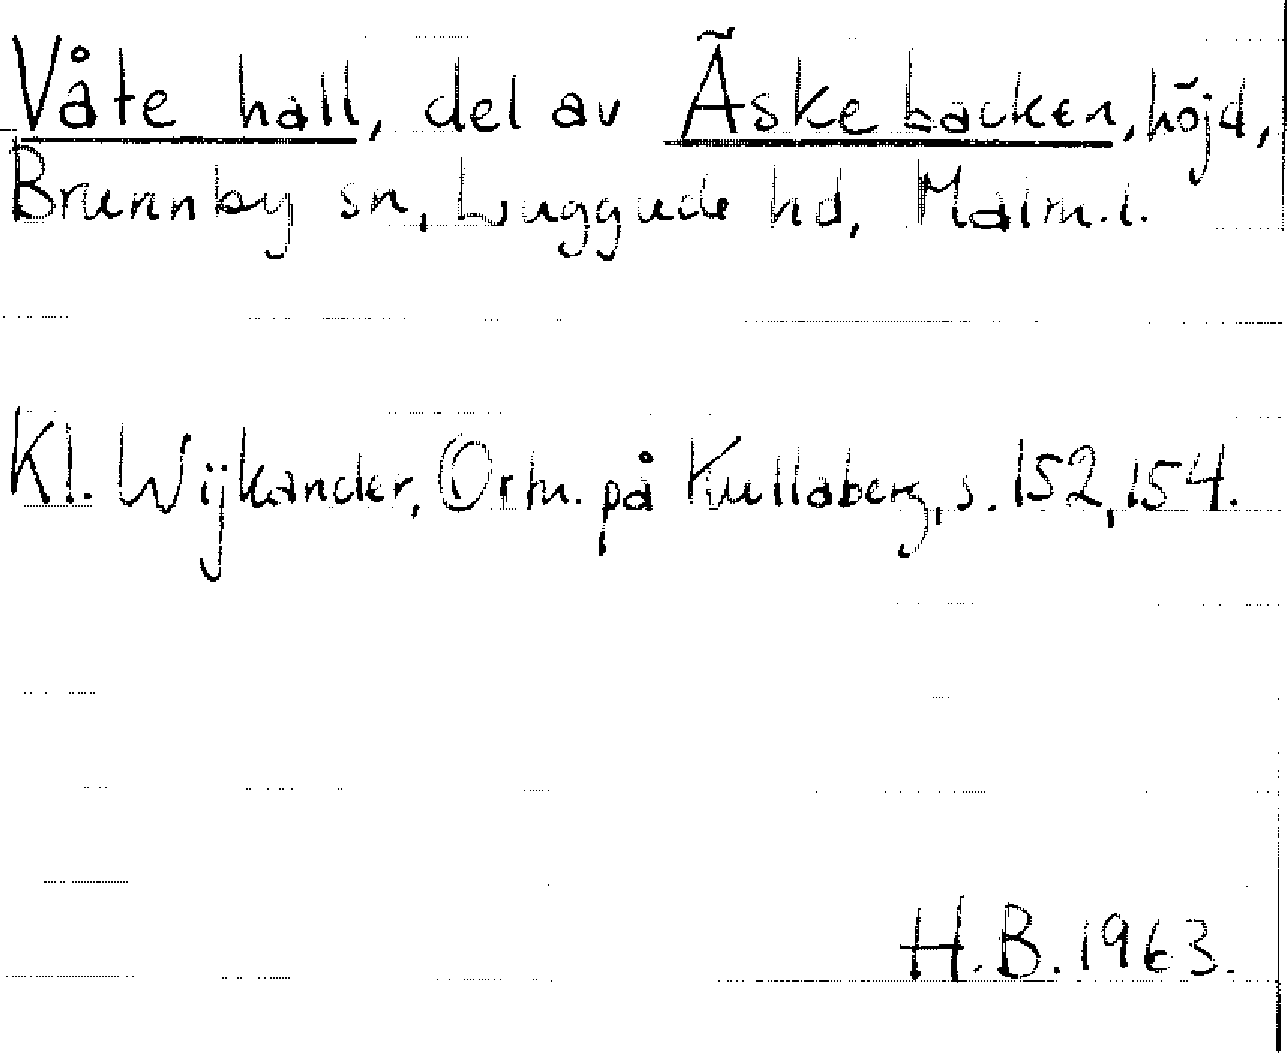 Våte hall, del av Äske backen, höjd,
Brunnby sn, Luggude hd, Malm.l.
Kl. Wijkander, Ortn. på Kullaberg, s. 152, 154.
H.B. 1963.